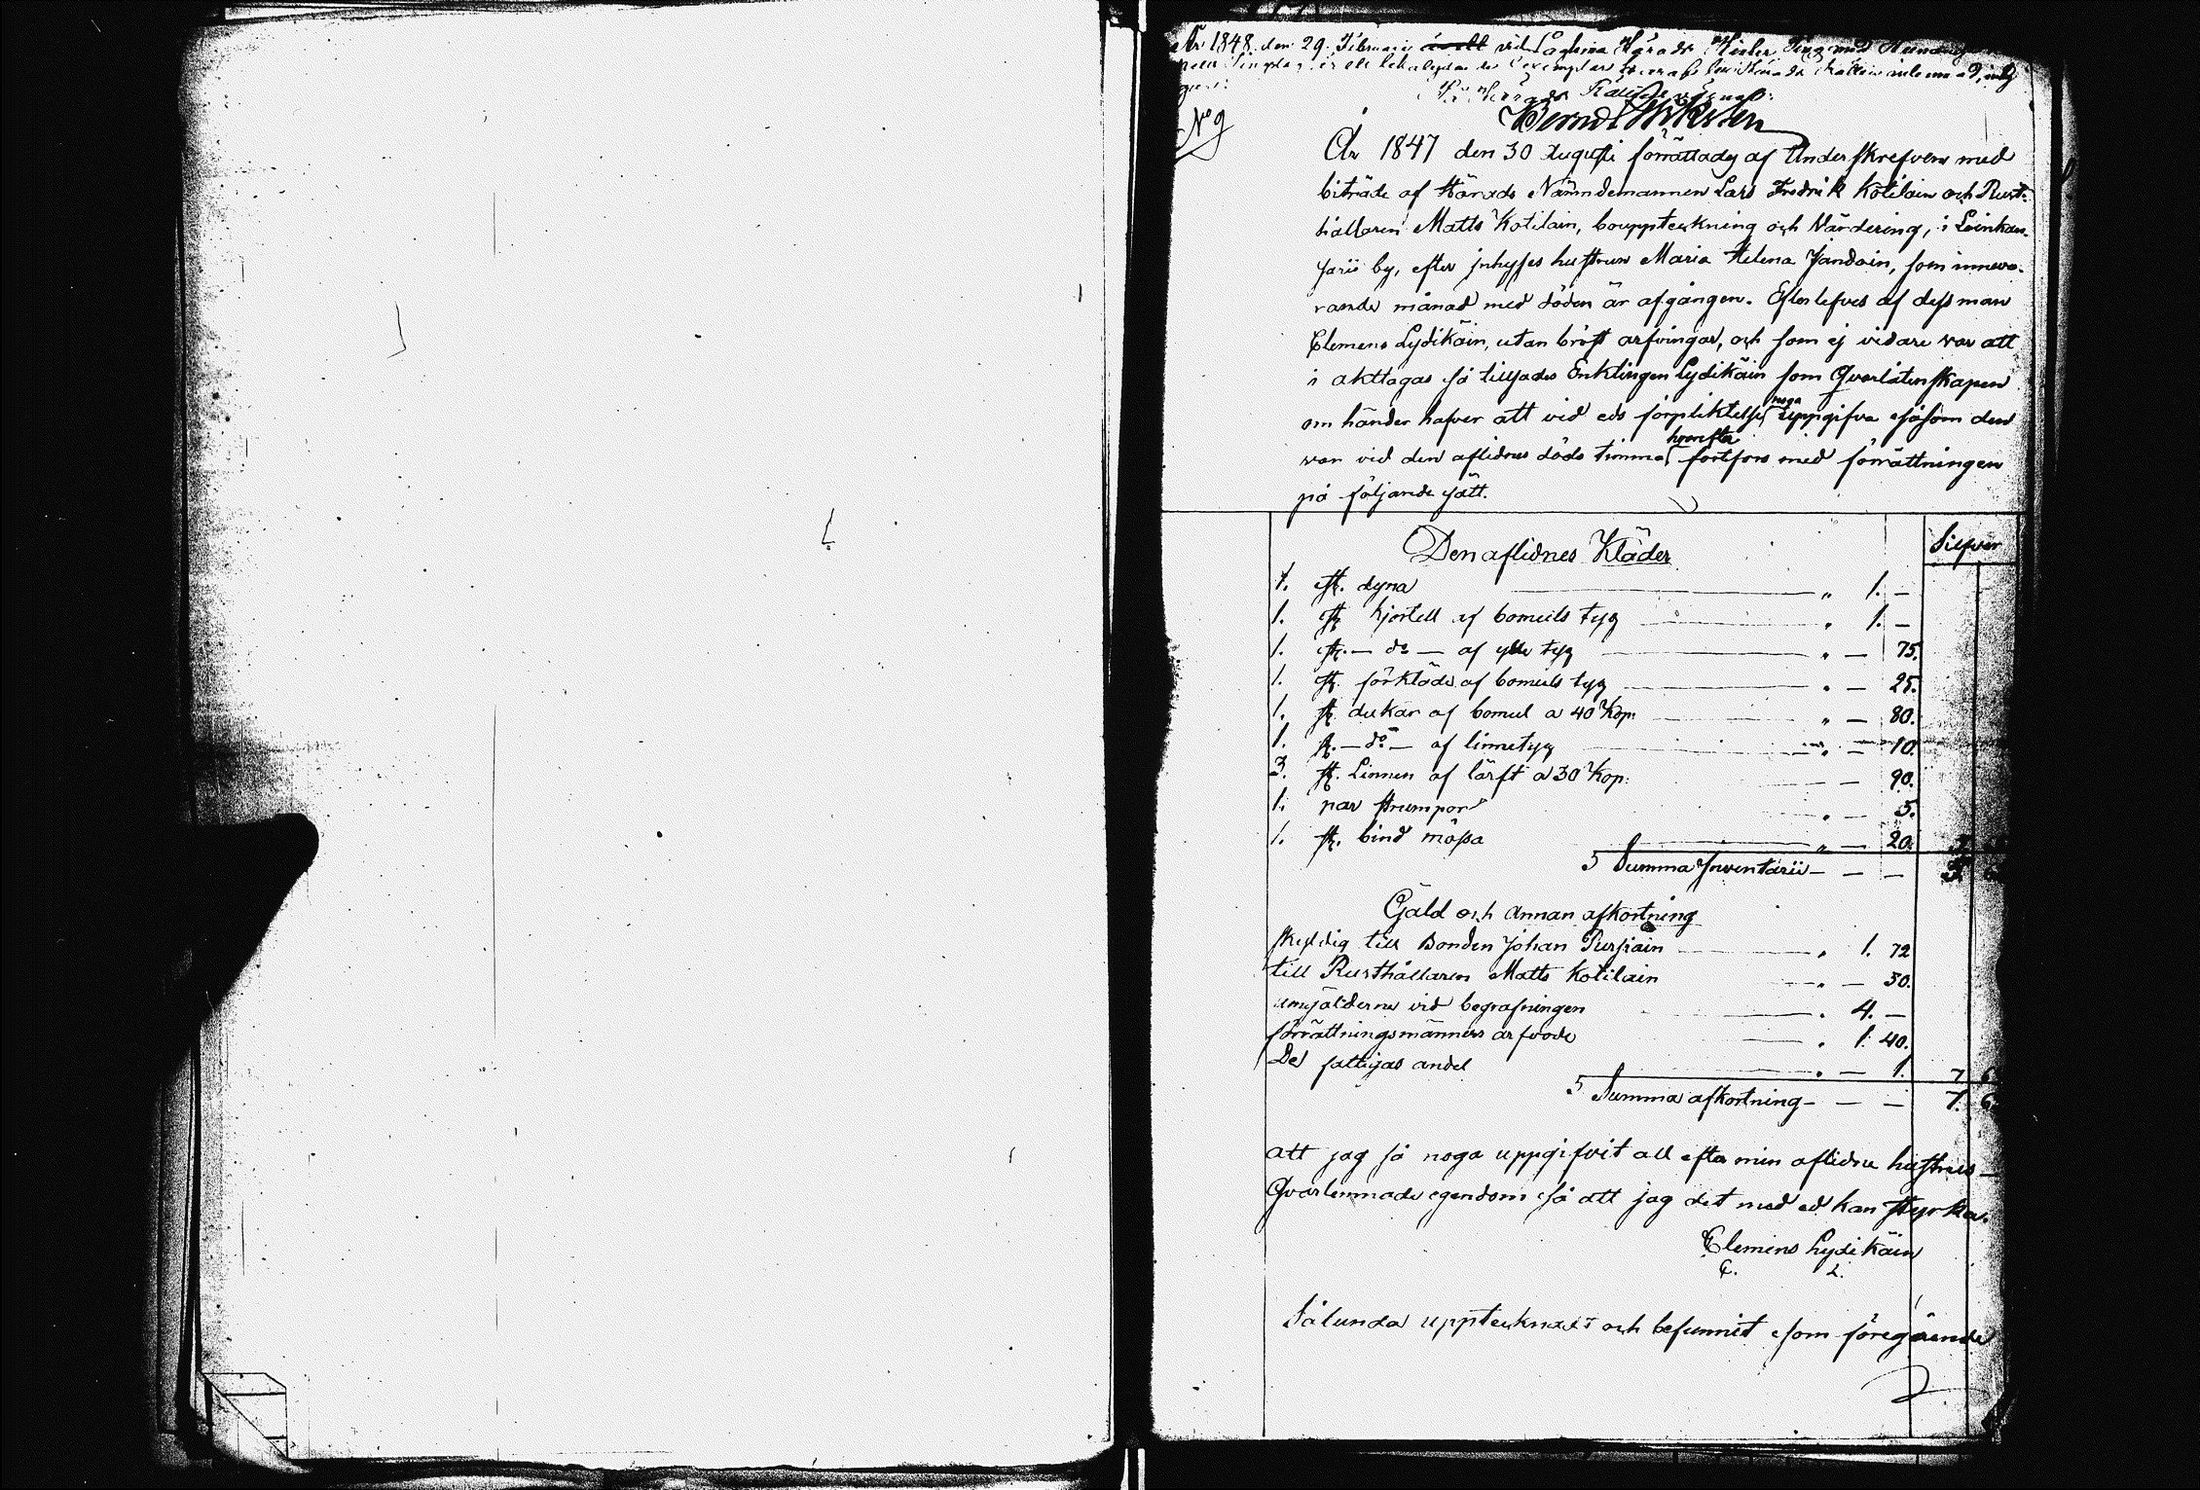 År 1848 den 29 Februarii vid Lagtima Härads Vinter Ting med
För Härads Rätten
No 9
År 1847 den 30 Augusti förrättades af Underskrefven med
biträde af Härads Nämndemannen Lars Fredrik Kotilain och Rust-
hållaren Matts Kotilain, bouppteckning och Värdering, i Leinkan-
jarü by, efter jnhyses hustrun Maria Helena Jandain, som inneva-
rande månad med döden är afgången. Efterlefves af dess man
Clemens Lydikäin, utan bröst arfvingar, och som ej vidare var att
i akttagas så tillsades Enklingen Lydikäin som Qvarlåtenskapen
om händer hafver att vid eds förpliktelse noga uppgifva såsom den
var vid den aflidnes döds timma hvarefter fortfors med förrättningen
på följande sätt.
Silfver
Den aflidnes Kläder
1. st. dyna " 1. —
1. st kjortell af bomuls tyg " 1. —
1. st. — do — af ylle tyg " — 75.
1. st. förkläde af bomuls tyg " — 25.
1. st dukar af bomul a 40 Kop: " — 80.
1. st. — do — af linnetyg " — 10.
3. st. Linnen af lärft a 30 Kop: — 90.
1. par strumpor " — 5.
1. st. bind mössa " — 20. 5
Summa Inventarii — — — 5
Gäld och annan afkortning
Skyldig till Bonden Johan Pursiain " 1. 72
till Rusthållaren Matts Kotilain " — 30.
umgälderne vid begrafningen " 4. —
förrättningsmännens arfvode " 1. 40.
De fattigas andel " — 1. 7 6
Summa afkortning — — — 7. 6
Att jag så noga uppgifvit all efter min aflidne hustrus
Qvarlemnade egendom så att jag det med ed kan styrka.
Clemens Lydikäin
C. L.
Sålunda upptecknadt och befunnit som föregående